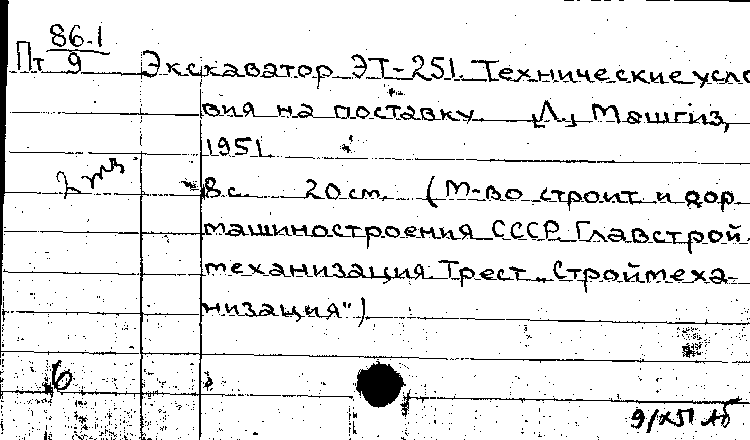 Пт 86.1/9 Экскаватор ЭТ-251. Технические усло
вия на поставку. Л., Машгиз,
1951.
8 с. 20 см. (М-во строит и дор.
машиностроения СССР. Главстрой
механизация. Трест „Строймеха-
низация")
2 экз
6
9/XI51